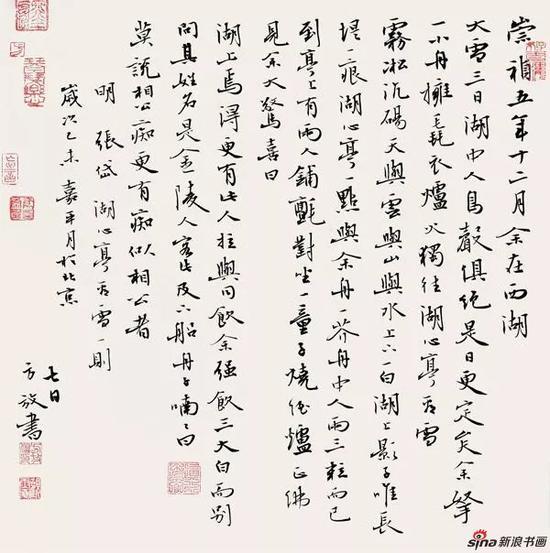 崇禎五年十二月余在西湖
大雪三日湖中人鳥聲俱絕是日更定矣余拏
一小舟擁毳衣爐火獨往湖心亭看雪
霧凇沆碭天與雲與山與水上下一白湖上影子唯長
堤一痕湖心亭一點與余舟一芥舟中人兩三粒而已
到亭上有兩人鋪氈對坐一童子燒酒爐正沸
見余大驚喜曰
湖上焉得更有此人拉與同飲余強飲三大白而別
問其姓名是金陵人客此及下船舟子喃〻曰
莫說相公痴更有痴似相公者
明 張岱 湖心亭看雪一則
歲次乙未 嘉平月於北京
七日
方放書
sina新浪书画